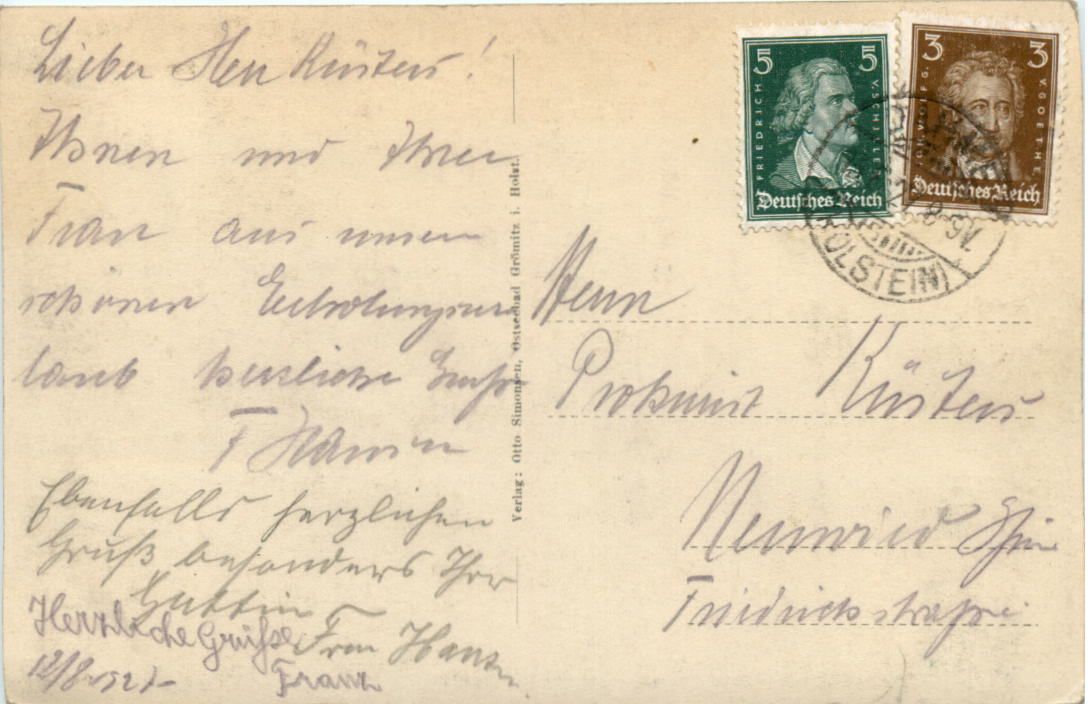 Lieber Herr Küsters!
Ihnen und Ihrer
Frau aus unserem
schönen Erholungsur
laub herzliche Grüße
F Hansen
Ebenfalls herzlichen
Gruß besonders Ihre
Gattin
Frau Hansen
Herzliche Grüße
Franz
12/8
Verlag: Otto Simonsen, Ostseebad Grömitz i. Holst.
5 5
FRIEDRICH V. SCHILLER
Deutsches Reich
3 3
JOH. WOLFG. V. GOETHE
Deutsches Reich
(HOLSTEIN)
Herrn
Prokurist Küsters
Neuwied
Friedrichstraße